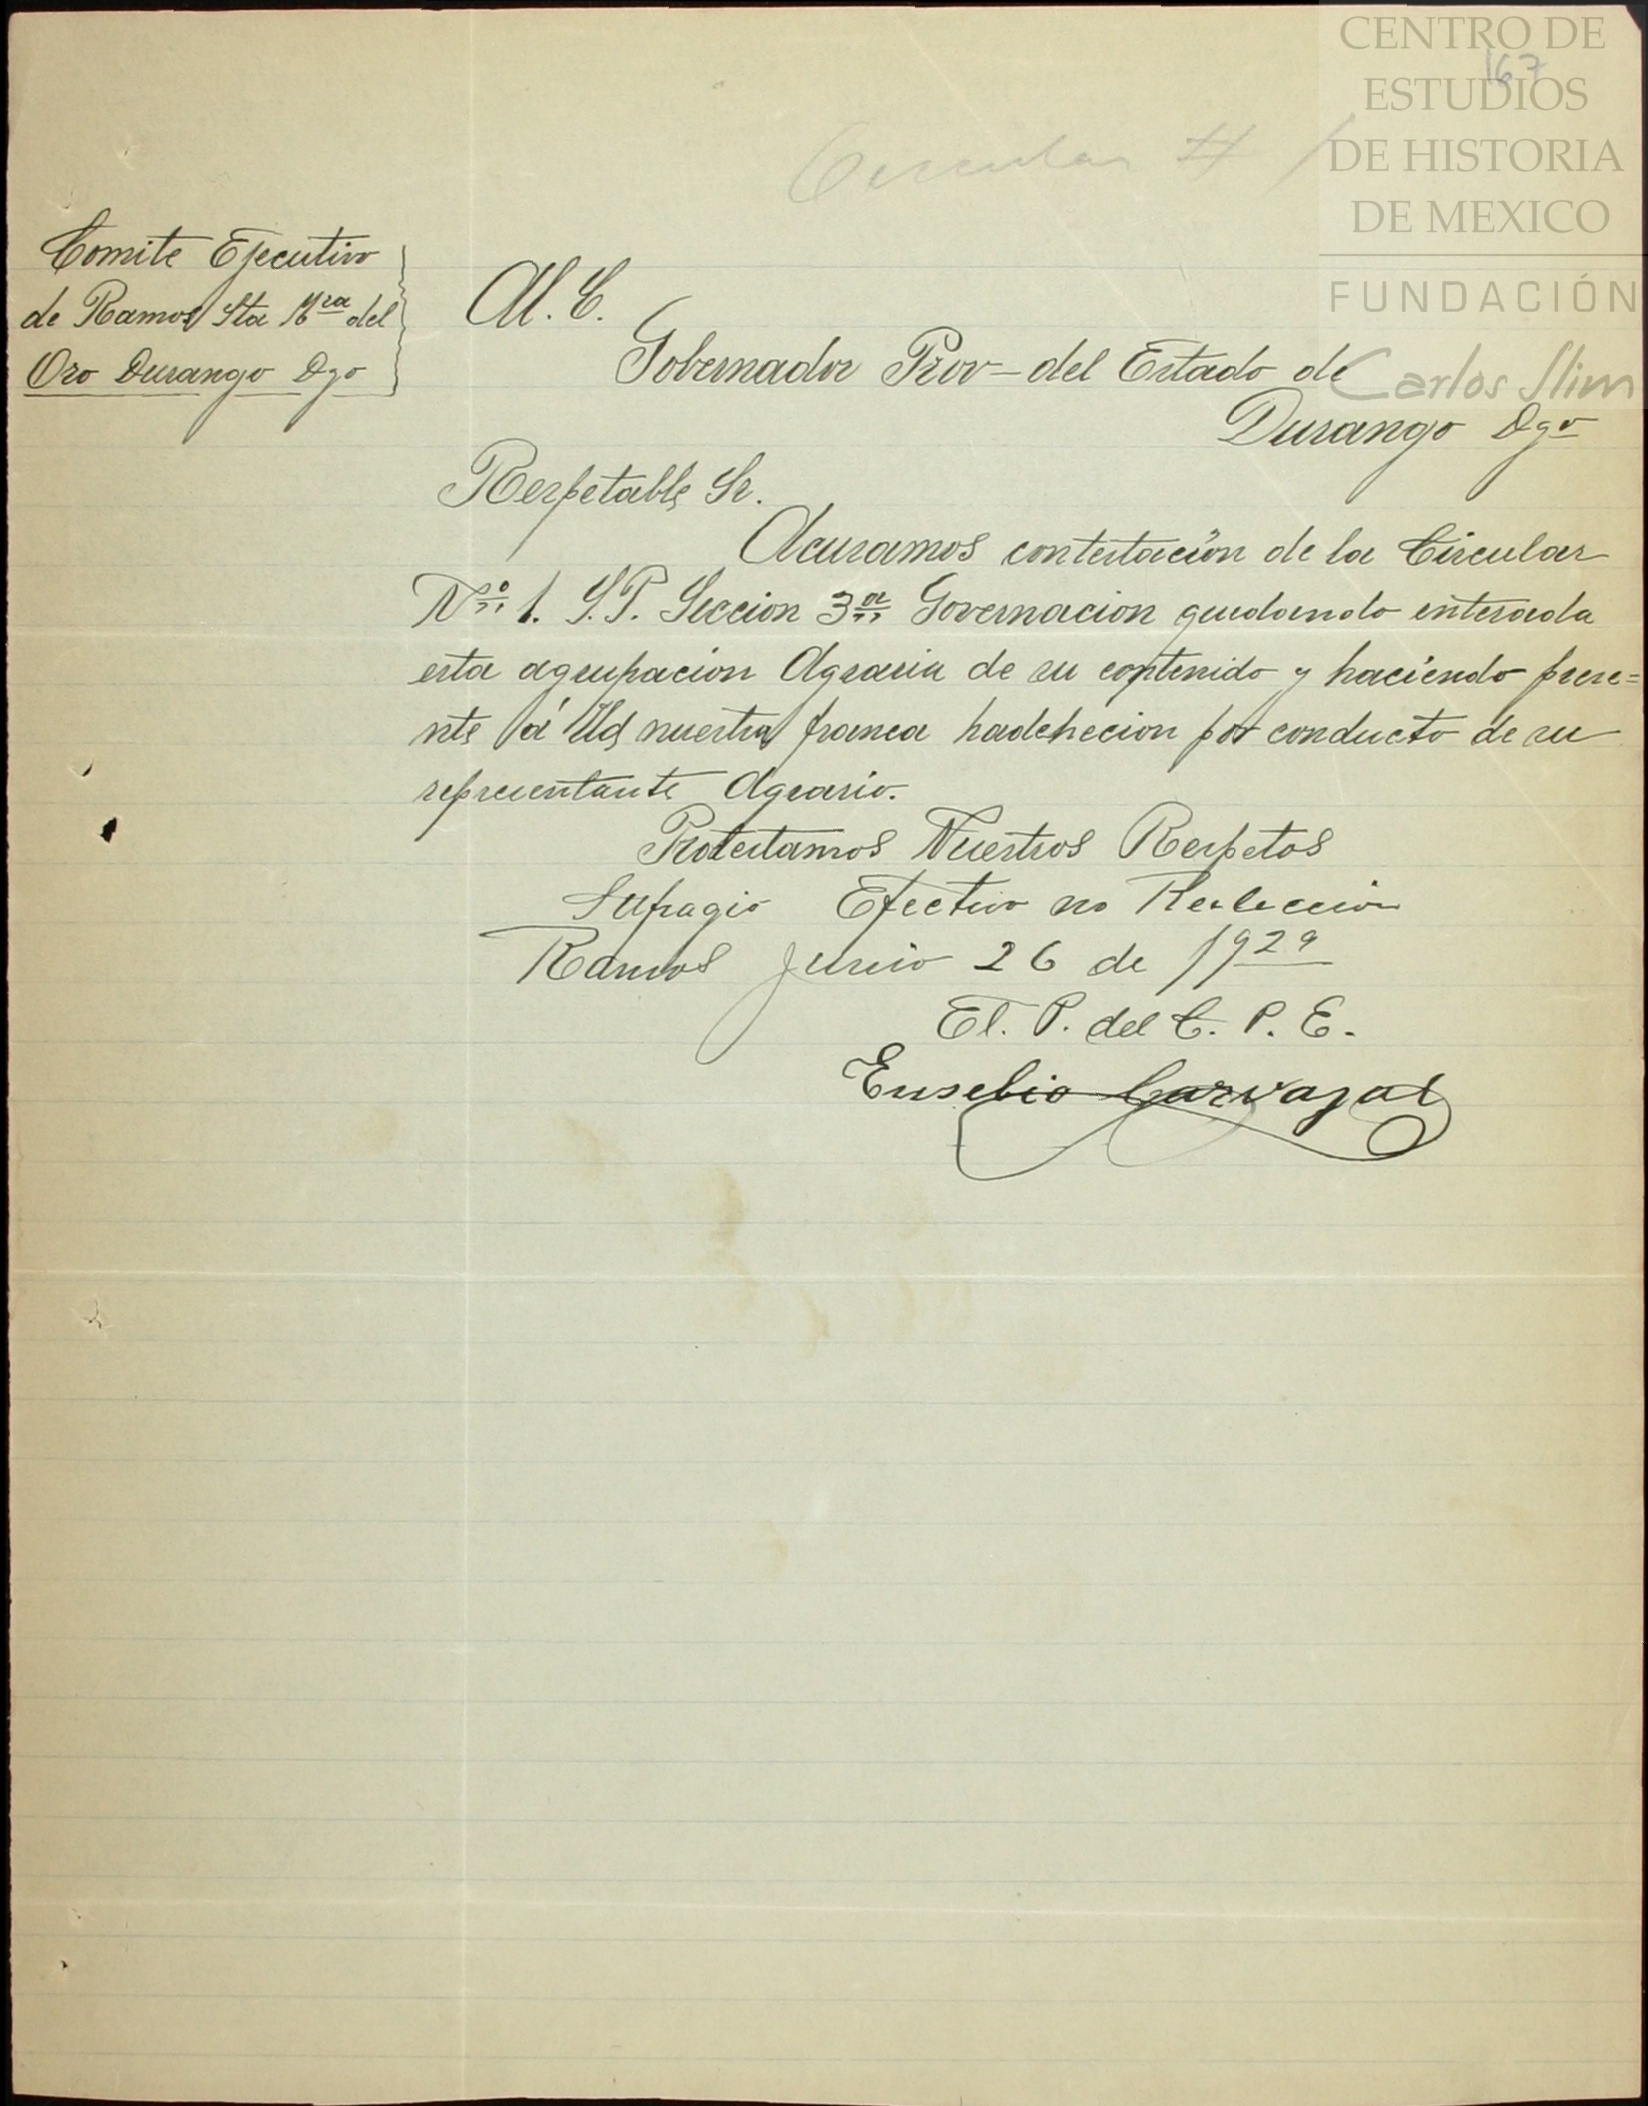 CENTRO DE
ESTUDIOS
DE HISTORIA
DE MEXICO
FUNDACIÓN
Carlos Slim
167
Circular # 1
Comite Ejecutivo
de Ramos Sta Mra del
Oro Durango Dgo
Al. C.
Gobernador Prov- del Estado de
Durango Dgo
Respetable Sr.
Acusamos contestación de la Circular
No. 1. S.P. Seccion 3a. Governacion quedando enterada
esta agrupacion Agraria de su contenido y haciendo prese=
nte á Ud nuestra franca hadehecion por conducto de su
representante Agrario.
Protestamos Nuestros Respetos
Sufragio Efectivo no Releccion
Ramos Junio 26 de 1929
El. P. del C. P. E.
Eusebio Carvajal